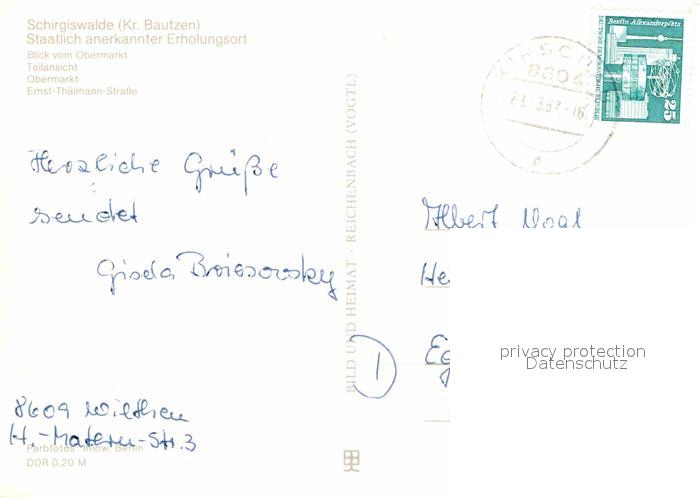 Schirgiswalde (Kr. Bautzen)
Staatlich anerkannter Erholungsort
Blick vom Obermarkt
Teilansicht
Obermarkt
Ernst-Thälmann-Straße
Berlin, Alexanderplatz
25
8604
21.-3.87.-16
Herzliche Grüße
sendet
Gisela
8609 Wilthen
H.-Matern-Str.3
BILD UND HEIMAT · REICHENBACH (VOGTL)
1
Albert
He
Eg
privacy protection
Datenschutz
Farbfotos: Imow, Berlin
DDR 0,20 M